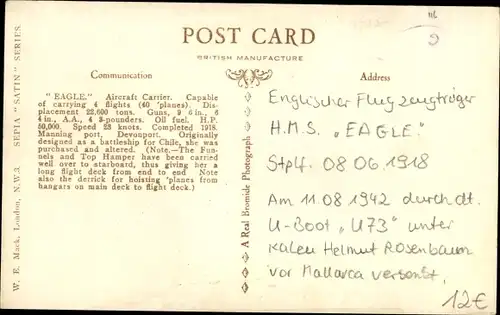 POST CARD
BRITISH MANUFACTURE
Communication
Address
"EAGLE." Aircraft Carrier. Capable
of carrying 4 flights (40 'planes). Dis-
placement 22,600 tons. Guns, 9 6 in., 6
4 in., A.A., 4 3-pounders. Oil fuel. H.P.
50,000. Speed 23 knots. Completed 1918.
Manning port, Devonport. Originally
designed as a battleship for Chile, she was
purchased and altered. (Note.—The Fun-
nels and Top Hamper have been carried
well over to starboard, thus giving her a
long flight deck from end to end Note
also the derrick for hoisting 'planes from
hangars on main deck to flight deck.)
W. E. Mack, London, N.W.3. SEPIA "SATIN" SERIES.
A Real Bromide Photograph
Englischer Flugzeugträger
H.M.S. „EAGLE"
Stpl. 08 06.1918
Am 11.08 1942 durch dt.
U-Boot „U73" unter
KaLeu Helmut Rosenbaum
vor Mallorca versenkt.
12€